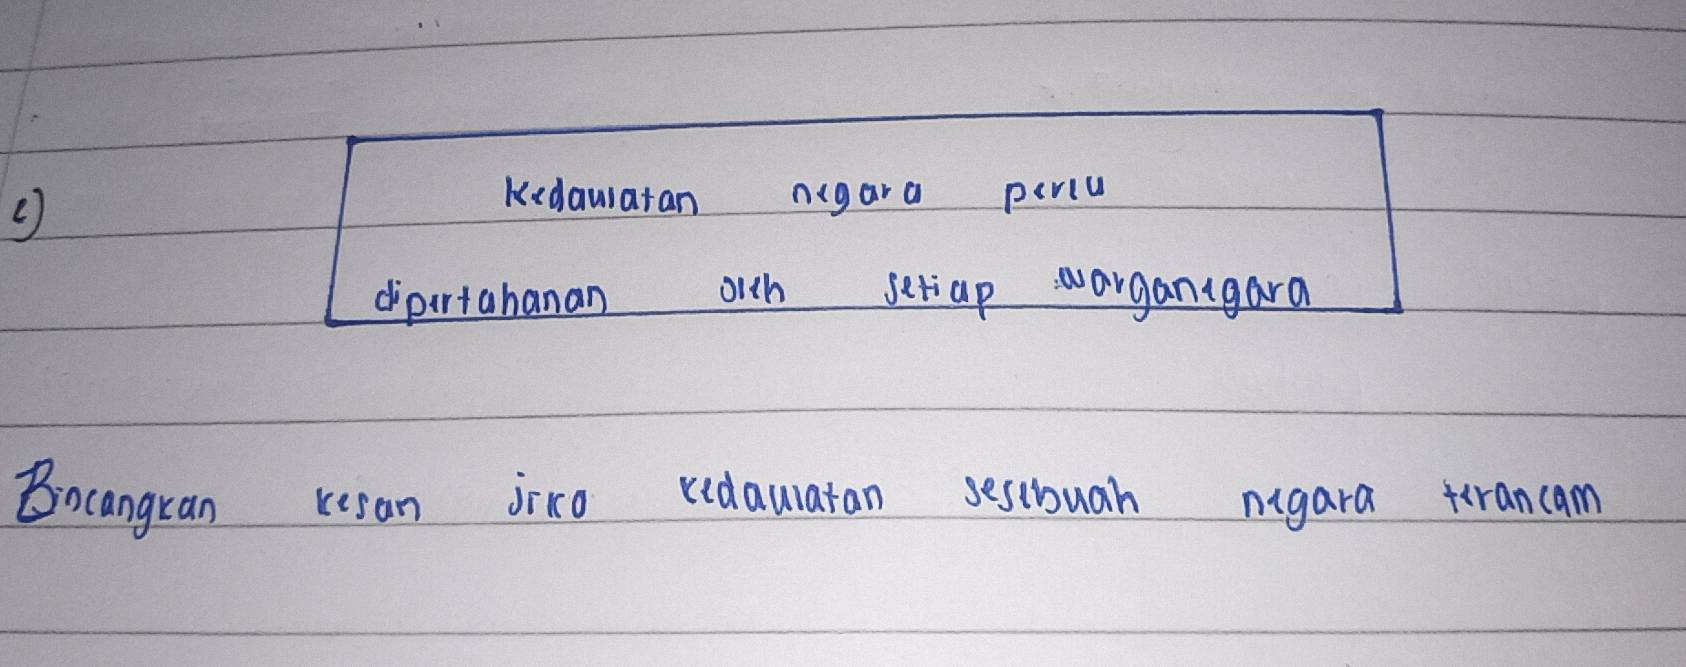 c)
Kedaulatan negara perlu
dipertahanan oleh setiap warganegara
Bincangkan kesan jika kedaulatan sesebuah negara terancam